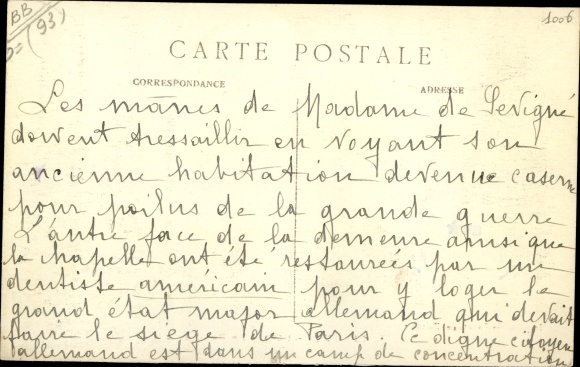 BB
(93)
1006
CARTE POSTALE
CORRESPONDANCE
ADRESSE
Les mânes de Madame de Sévigné
doivent tressaillir en voyant son
ancienne habitation devenue caserne
pour poilus de la grande guerre
L'autre face de la demeure ainsi que
la chapelle ont été restaurées par un
dentiste américain pour y loger le
grand état major allemand qui devait
faire le siège de Paris. Ce digne citoyen
allemand est dans un camp de concentration